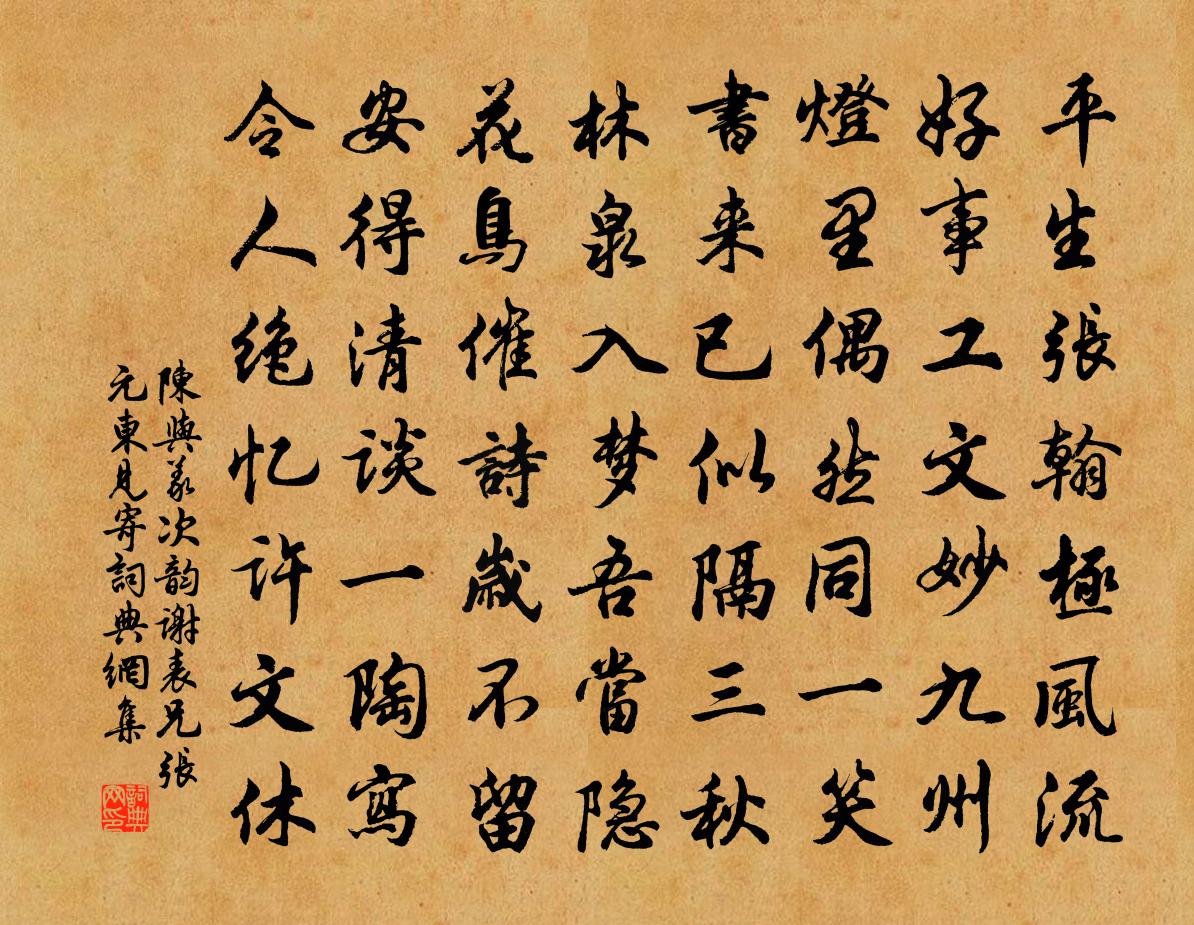 平生張翰極風流
好事工文妙九州
燈里偶然同一笑
書来已似隔三秋
林泉入梦吾當隐
花鳥催詩歲不留
安得清談一陶寫
令人绝忆许文休
陳與義次韵谢表兄張
元東見寄詞典網集
詞典
网印